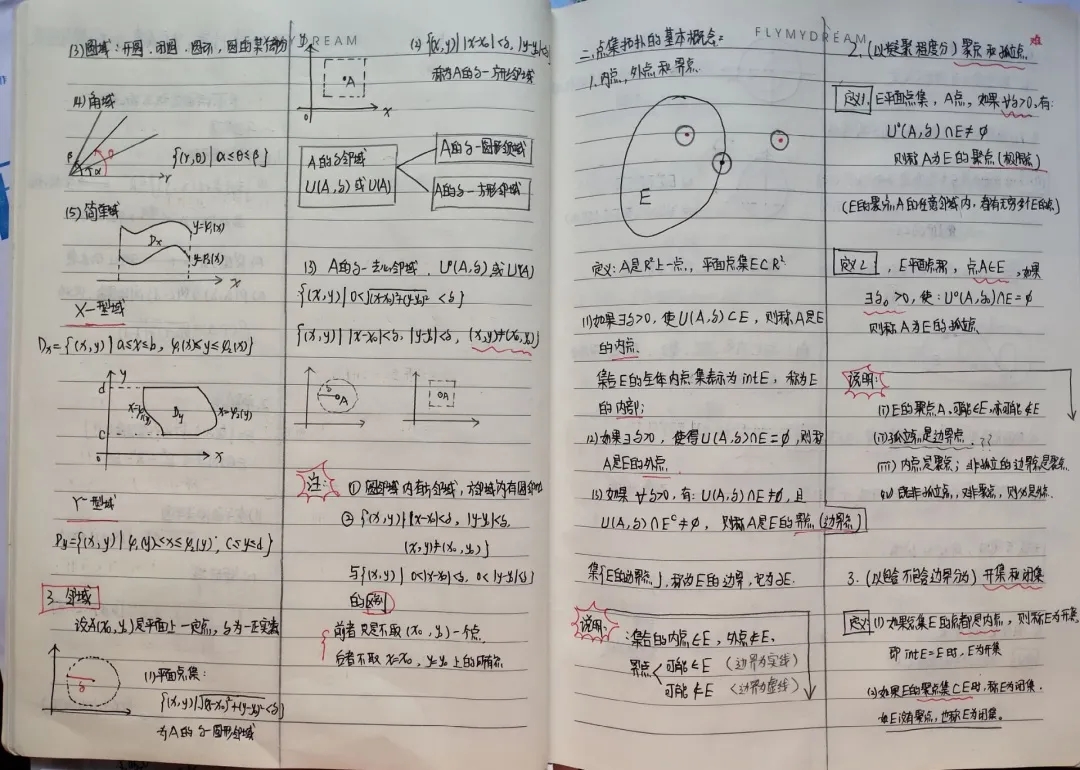 (3) 圆域：开圆、闭圆、圆环、圆的某部分
(4) 角域
β
θ
α
r
{(r,θ) | α≤θ≤β}
(5) 简单域
y=φ₂(x)
Dx
y=φ₁(x)
x
X-型域
Dx={(x,y) | a≤x≤b, φ₁(x)≤y≤φ₂(x)}
y
d
Dy
x=ψ₂(y)
c
o
x
Y-型域
Dy={(x,y) | ψ₁(y)≤x≤ψ₂(y), c≤y≤d}
3. 邻域
设A(x₀,y₀)是平面上一定点，δ为一正实数
δ
(1) 平面点集：
{(x,y)|√(x-x₀)²+(y-y₀)²<δ}
为A的δ-圆形邻域
DREAM
(2) {(x,y) | |x-x₀|<δ, |y-y₀|<δ}
称为A的δ-方形邻域
·A
o
x
A的δ邻域
U(A,δ)或U(A)
A的δ-圆形邻域
A的δ-方形邻域
(3) A的δ-去心邻域，U°(A,δ)或U°(A)
{(x,y) | 0<√(x-x₀)²+(y-y₀)² <δ}
{(x,y) | |x-x₀|<δ, |y-y₀|<δ, (x,y)≠(x₀,y₀)}
δ
A
A
注：
① 圆邻域内有方邻域，方邻域内有圆邻域
② {(x,y) | |x-x₀|<δ, |y-y₀|<δ,
(x,y)≠(x₀,y₀)}
与{(x,y) | 0<|x-x₀|<δ, 0<|y-y₀|<δ}
的区别
前者只是不取(x₀,y₀)一个点
后者不取x=x₀, y=y₀上的所有点
FLYMYDREAM
二、点集拓扑的基本概念：
1. 内点，外点和界点
E
定义：A是R²上一点，平面点集E⊂R²
(1)如果∃δ>0，使U(A,δ)⊂E，则称A是E
的内点.
集合E的全体内点集表示为intE，称为E
的内部；
(2)如果∃δ>0，使得U(A,δ)∩E=∅，则称
A是E的外点.
(3)如果 ∀δ>0，有：U(A,δ)∩E≠∅，且
U(A,δ)∩Eᶜ≠∅，则称A是E的界点(边界点)
集{E的边界点}，称为E的边界，记为∂E.
说明：
集合的内点∈E，外点∉E，
界点
可能∈E （边界为实线）
可能∉E （边界为虚线）
2. (以凝聚程度分) 聚点和孤立点
难
定义1. E平面点集，A点，如果∀δ>0，有：
U°(A,δ)∩E≠∅
则称A为E的聚点(极限点)
(E的聚点A的任意邻域内，都有无穷多个E的点)
定义2. E平面点集，点A∈E，如果
∃δ₀>0，使：U°(A,δ₀)∩E=∅
则称A为E的孤立点.
说明：
(i) E的聚点A，可能∈E，亦可能∉E
(ii) 孤立点是边界点. ??
(iii) 内点是聚点；非孤立的边界点是聚点.
3. (以包含不包含边界分为) 开集和闭集
定义 (1)如果点集E的点都是内点，则称E为开集.
即 intE=E时，E为开集
(2)如果E的聚点集⊂E时，称E为闭集.
如E没有聚点，也称E为闭集。